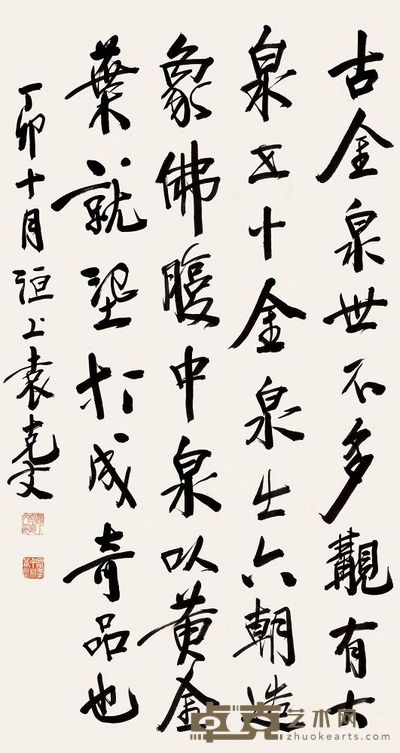 古金泉世不多覯有大
泉五十金泉出六朝造
象佛腹中泉以黄金
葉就成奇品也
丁卯十月洹上袁克文
卓克艺术网
zhuokearts.com